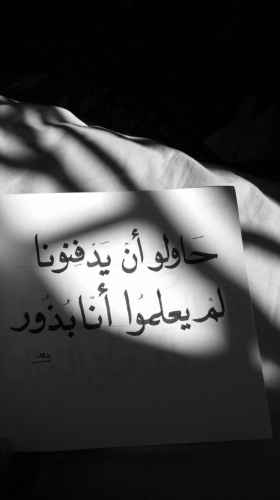 حَاولو أنْ يَدْفِنوُنا
لمْ يعلموُا أنّنا بُذُور